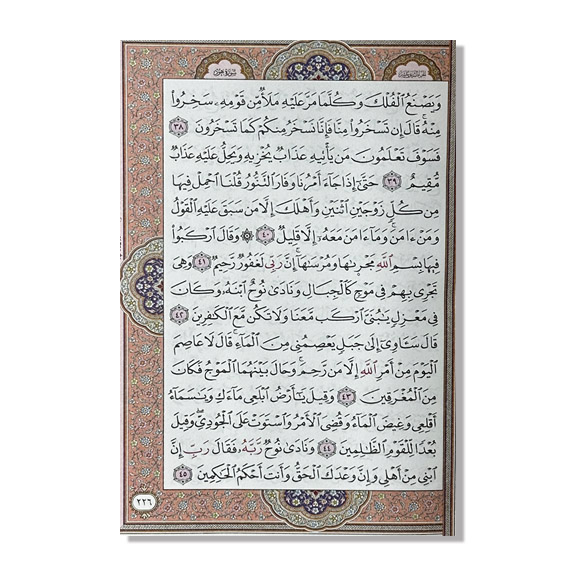 سُورَةُ هُودٍ
وَيَصْنَعُ ٱلْفُلْكَ وَكُلَّمَا مَرَّ عَلَيْهِ مَلَأٌ مِّن قَوْمِهِۦ سَخِرُوا۟
مِنْهُ ۚ قَالَ إِن تَسْخَرُوا۟ مِنَّا فَإِنَّا نَسْخَرُ مِنكُمْ كَمَا تَسْخَرُونَ ٣٨
فَسَوْفَ تَعْلَمُونَ مَن يَأْتِيهِ عَذَابٌ يُخْزِيهِ وَيَحِلُّ عَلَيْهِ عَذَابٌ
مُّقِيمٌ ٣٩ حَتَّىٰٓ إِذَا جَآءَ أَمْرُنَا وَفَارَ ٱلتَّنُّورُ قُلْنَا ٱحْمِلْ فِيهَا
مِن كُلٍّ زَوْجَيْنِ ٱثْنَيْنِ وَأَهْلَكَ إِلَّا مَن سَبَقَ عَلَيْهِ ٱلْقَوْلُ
وَمَنْ ءَامَنَ ۚ وَمَآ ءَامَنَ مَعَهُۥٓ إِلَّا قَلِيلٌ ٤٠ ۞ وَقَالَ ٱرْكَبُوا۟
فِيهَا بِسْمِ ٱللَّهِ مَجْر۪ىٰهَا وَمُرْسَىٰهَآ ۚ إِنَّ رَبِّى لَغَفُورٌ رَّحِيمٌ ٤١ وَهِىَ
تَجْرِى بِهِمْ فِى مَوْجٍ كَٱلْجِبَالِ وَنَادَىٰ نُوحٌ ٱبْنَهُۥ وَكَانَ
فِى مَعْزِلٍ يَـٰبُنَىَّ ٱرْكَب مَّعَنَا وَلَا تَكُن مَّعَ ٱلْكَـٰفِرِينَ ٤٢
قَالَ سَـَٔاوِىٓ إِلَىٰ جَبَلٍ يَعْصِمُنِى مِنَ ٱلْمَآءِ ۚ قَالَ لَا عَاصِمَ
ٱلْيَوْمَ مِنْ أَمْرِ ٱللَّهِ إِلَّا مَن رَّحِمَ ۚ وَحَالَ بَيْنَهُمَا ٱلْمَوْجُ فَكَانَ
مِنَ ٱلْمُغْرَقِينَ ٤٣ وَقِيلَ يَـٰٓأَرْضُ ٱبْلَعِى مَآءَكِ وَيَـٰسَمَآءُ
أَقْلِعِى وَغِيضَ ٱلْمَآءُ وَقُضِىَ ٱلْأَمْرُ وَٱسْتَوَتْ عَلَى ٱلْجُودِىِّ ۖ وَقِيلَ
بُعْدًا لِّلْقَوْمِ ٱلظَّـٰلِمِينَ ٤٤ وَنَادَىٰ نُوحٌ رَّبَّهُۥ فَقَالَ رَبِّ إِنَّ
ٱبْنِى مِنْ أَهْلِى وَإِنَّ وَعْدَكَ ٱلْحَقُّ وَأَنتَ أَحْكَمُ ٱلْحَـٰكِمِينَ ٤٥
٢٢٦